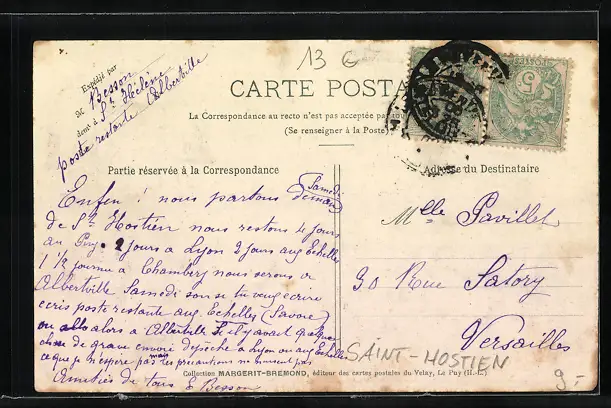 13 €
Expédié par
M Besson
demt à St Hélène
poste restante Albertville
CARTE POSTA
La Correspondance au recto n'est pas acceptée par tou
(Se renseigner à la Poste)
POSTES
5
Partie réservée à la Correspondance
Enfin ! nous partons Samedi
demain
de St Hostien nous restons 4 jours
au Puy. 2 jours à Lyon 2 jours aux Echelles
1 1/2 journée à Chambéry nous serons à
Albertville Samedi soir si tu veux ecrire
ecris poste restante aux Echelles (Savoie)
ou alors à Albertville S'il y avait quelque
chose de grave envoie depeche à Lyon ou aux Echelles
ce que je n'espère pas mais les précautions ne nuisent pas
Amitiés de tous E Besson
Adresse du Destinataire
Melle Pavillet
30 Rue Satory
Versailles
SAINT-HOSTIEN
9.-
Collection MARGERIT-BREMOND, éditeur des cartes postales du Velay, Le Puy (H.-L.)